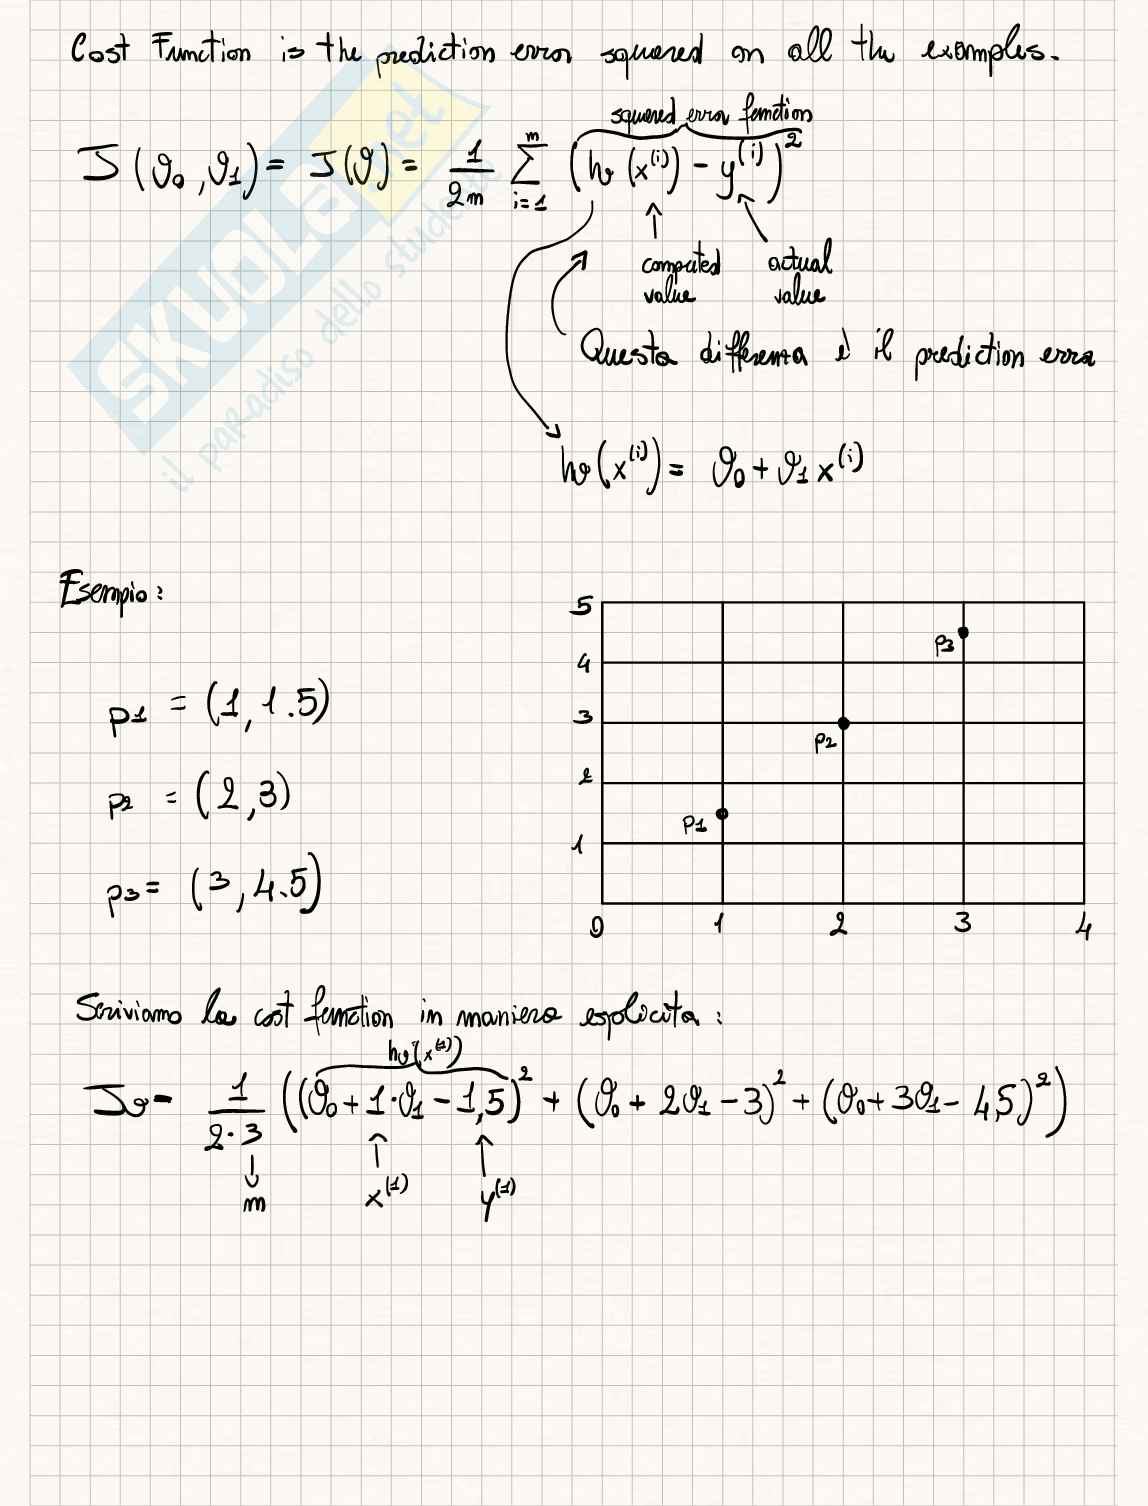 Cost Function is the prediction error squared on all the examples.
squared error function
J(ϑ₀,ϑ₁) = J(ϑ) = 1/2m ∑ᵢ₌₁ᵐ (hϑ(x⁽ⁱ⁾) - y⁽ⁱ⁾)²
computed value
actual value
Questa differenza è il prediction error
hϑ(x⁽ⁱ⁾) = ϑ₀ + ϑ₁x⁽ⁱ⁾
SKUOLA.net
il paradiso dello studente
Esempio:
p1 = (1, 1.5)
p2 = (2,3)
p3 = (3, 4.5)
5
4
3
2
1
p3
p2
p1
0 1 2 3 4
Scriviamo la cost function in maniera esplicita:
hϑ(x⁽¹⁾)
Jϑ = 1/2·3 ((ϑ₀ + 1·ϑ₁ - 1,5)² + (ϑ₀ + 2ϑ₁ - 3)² + (ϑ₀ + 3ϑ₁ - 4,5)²)
m
x⁽¹⁾
y⁽¹⁾